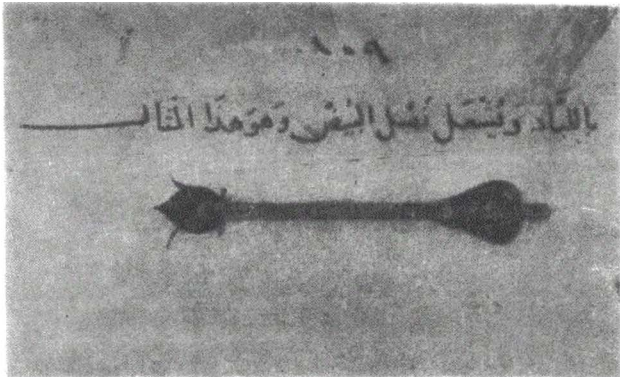 ١٠٩
باللباد وَيُشْعَل نَصْل البيض وَهوَهذَا المثَالـــــ